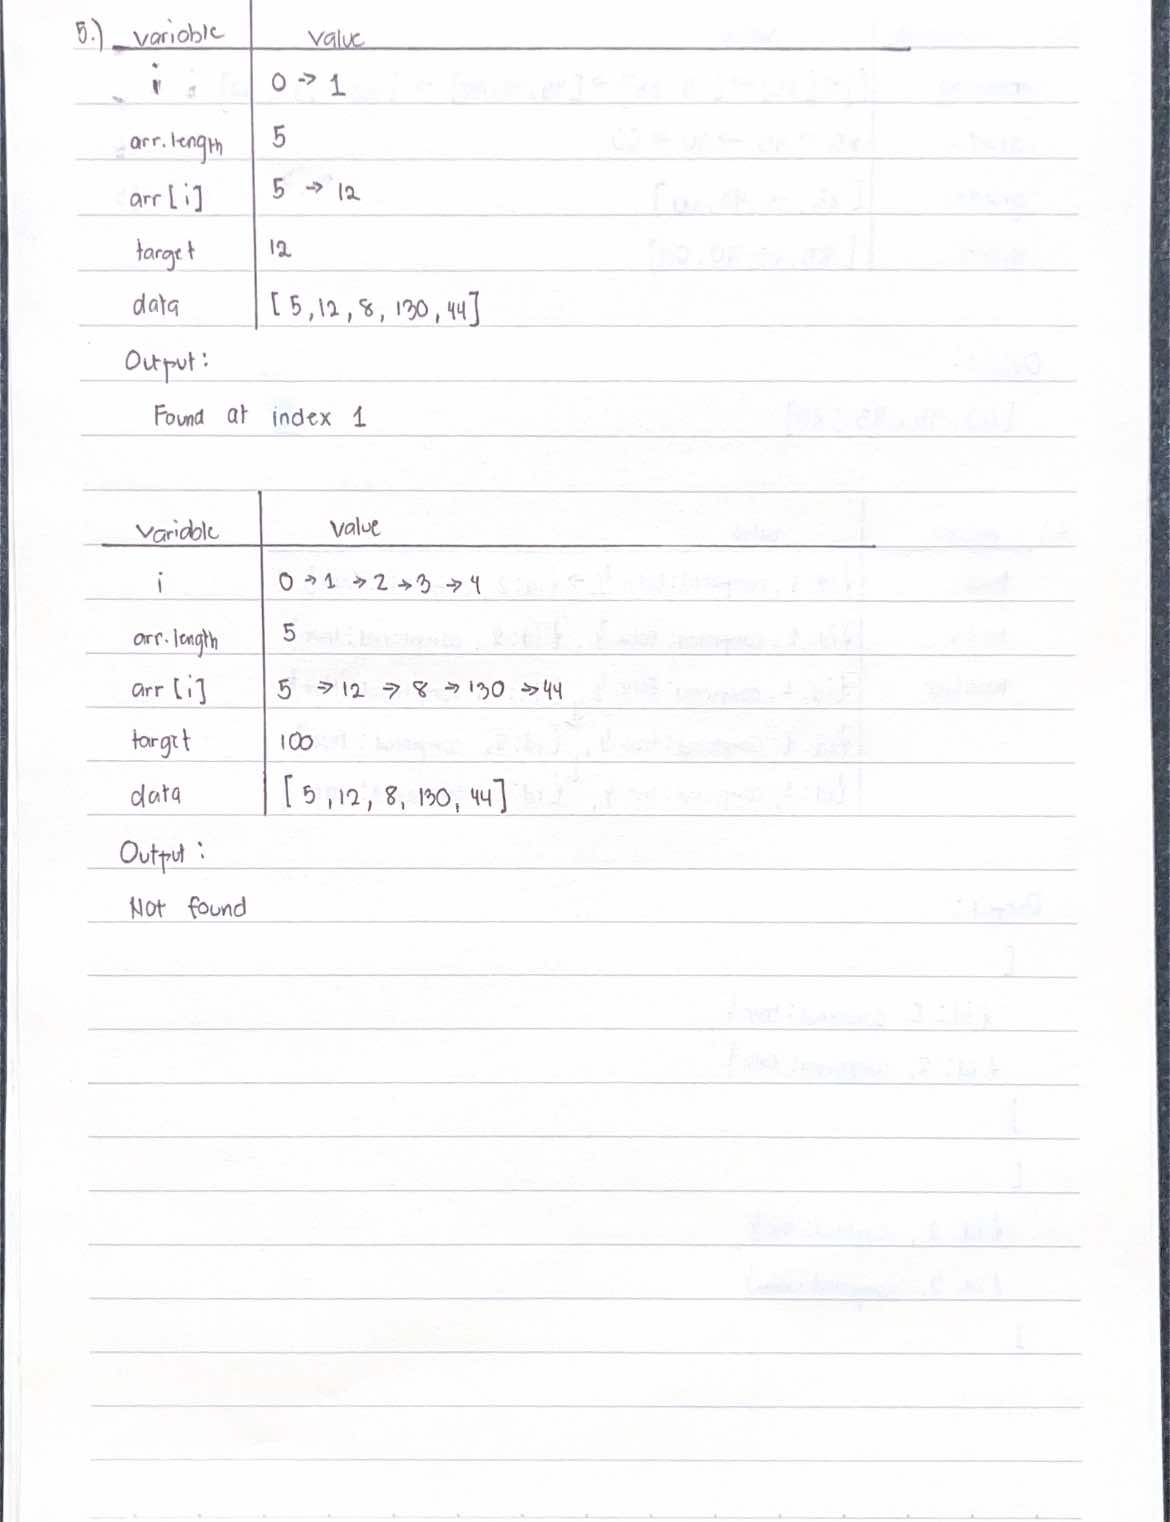 5.) variable value
i 0 → 1
arr.length 5
arr[i] 5 → 12
target 12
data [5,12,8,130,44]
Output:
Found at index 1
variable value
i 0 → 1 → 2 → 3 → 4
arr.length 5
arr[i] 5 → 12 → 8 → 130 → 44
target 100
data [5,12,8,130,44]
Output:
Not found